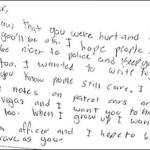 r,
aw that you were hurt and
you'll be ok. I hope people
be nicer to police and keep yo
too. I wanted to write to
you know people still care. I
notes on patrol cars ar
vegas and I want you to ha
too. When I grow up I wan
an officer and I hope to b
rave as your